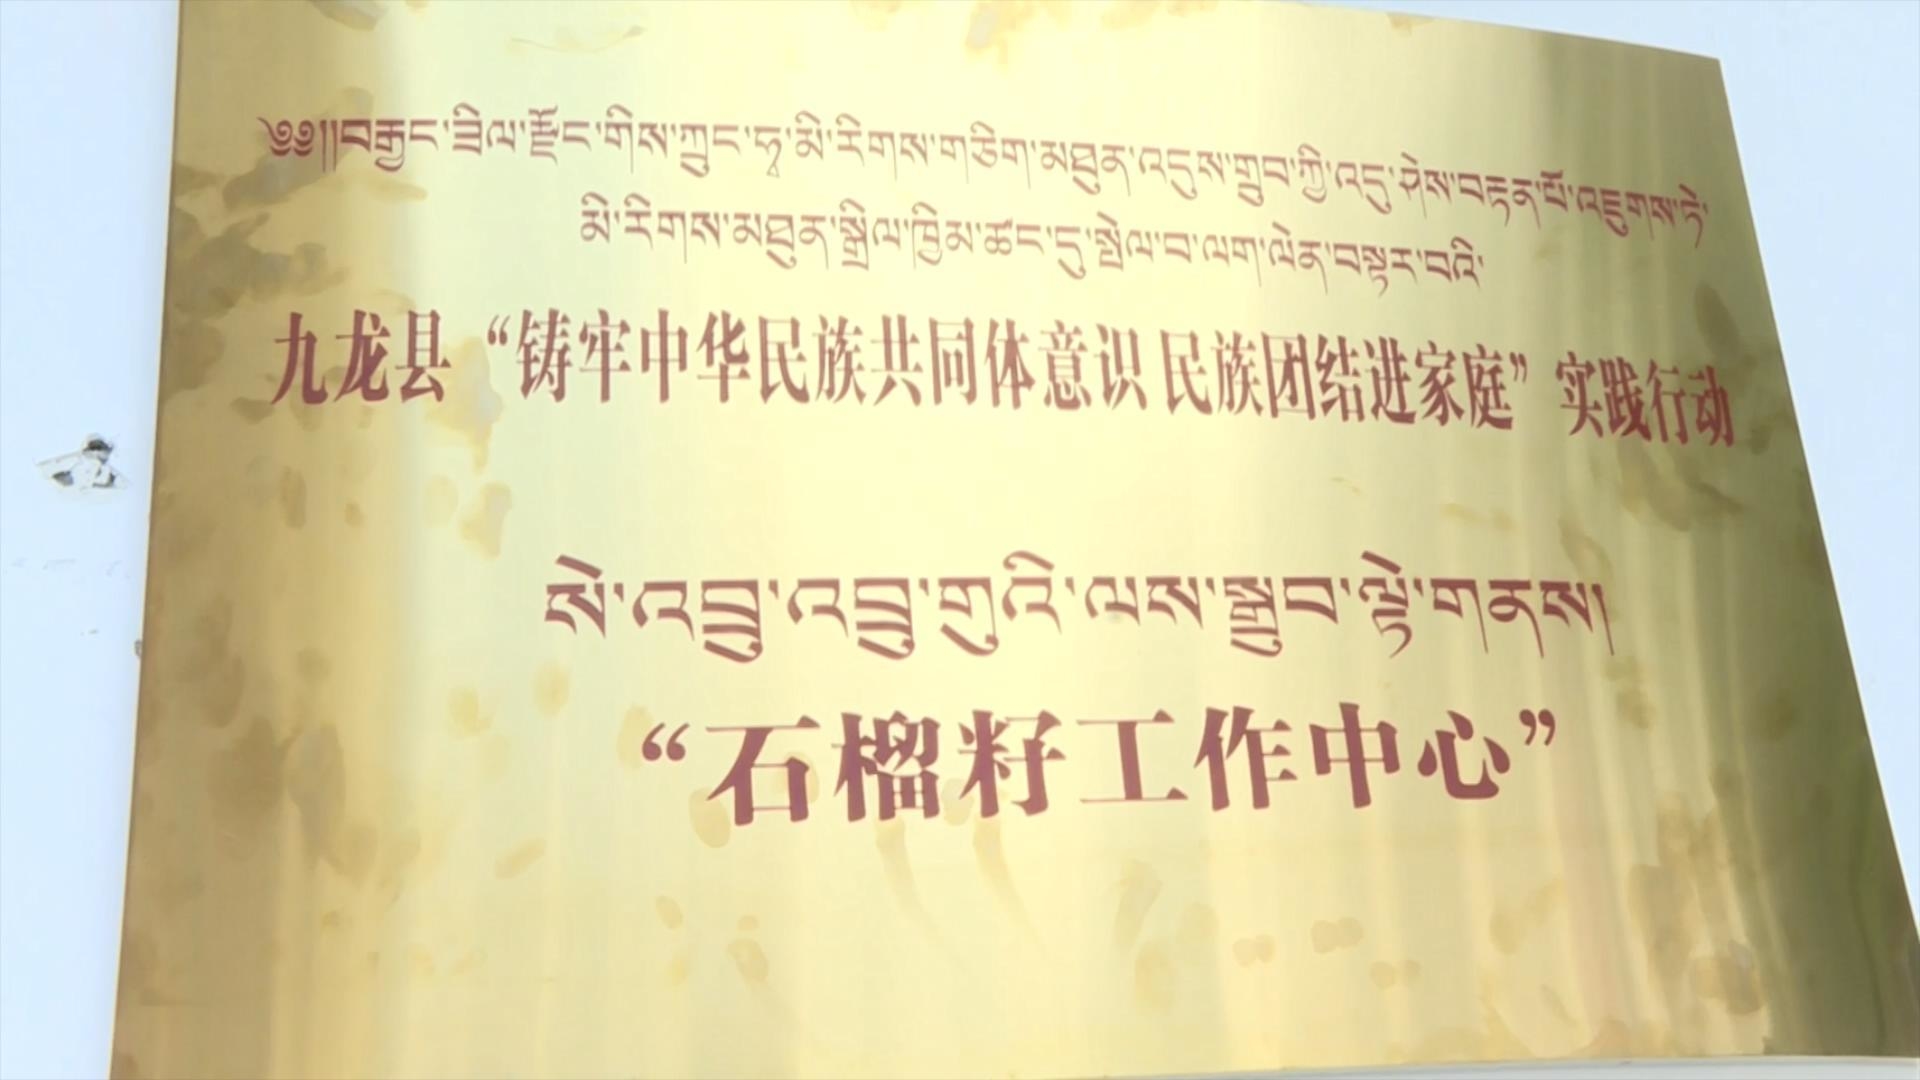 ༄༅།།བརྒྱད་ཟིལ་རྫོང་གིས་ཀྲུང་ཧྭ་མི་རིགས་གཅིག་མཐུན་འདུས་གྲུབ་ཀྱི་འདུ་ཤེས་བརྟན་པོ་འཛུགས་ཏེ་
མི་རིགས་མཐུན་སྒྲིལ་ཁྱིམ་ཚང་དུ་སྤེལ་བ་ལག་ལེན་བསྟར་བའི་
九龙县“铸牢中华民族共同体意识 民族团结进家庭”实践行动
སེ་འབྲུ་འབྲུ་གུའི་ལས་སྒྲུབ་ལྟེ་གནས།
“石榴籽工作中心”